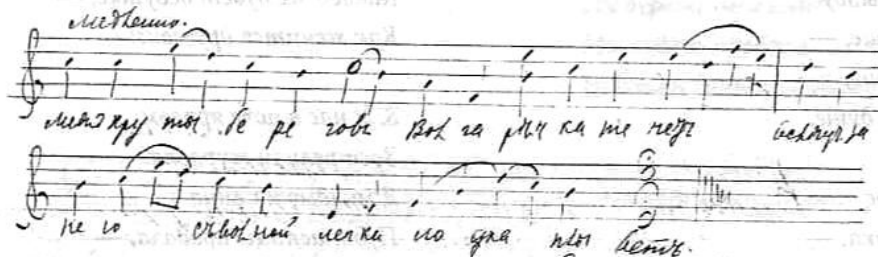 медленно.
меня кру ты бе ре говъ Вол га рѣч ка те четъ
не го съ вол ной легка ло дка плы ветъ.